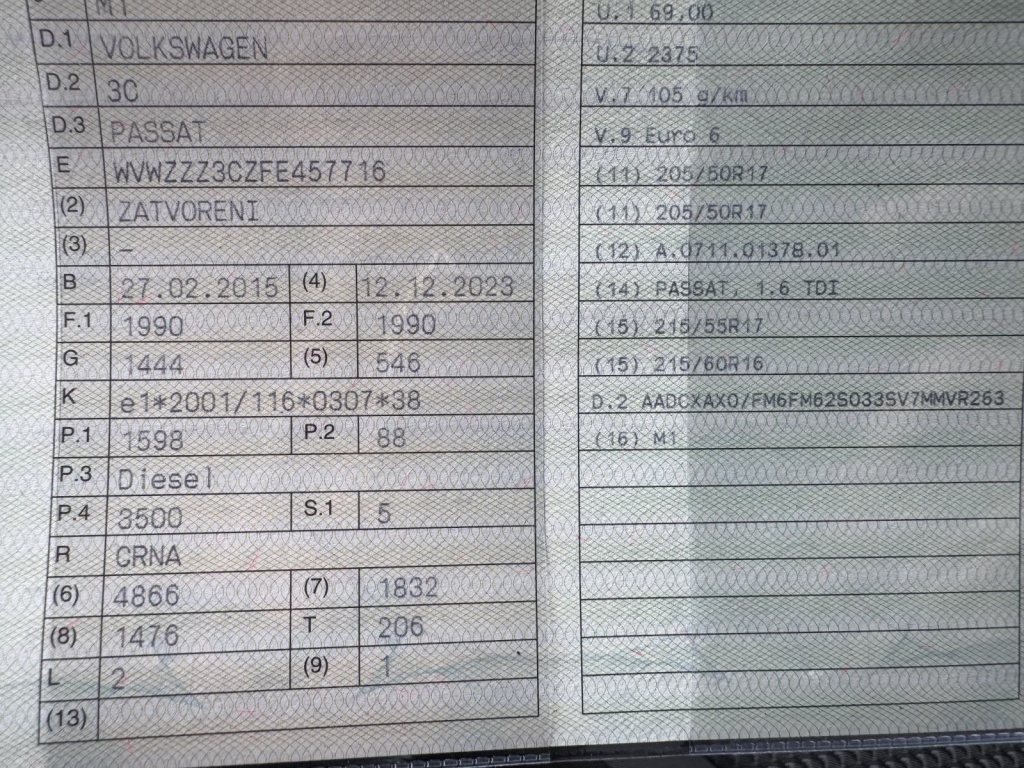 M1
D.1 VOLKSWAGEN
D.2 3C
D.3 PASSAT
E WVWZZZ3CZFE457716
(2) ZATVORENI
(3) –
B 27.02.2015 (4) 12.12.2023
F.1 1990 F.2 1990
G 1444 (5) 546
K e1*2001/116*0307*38
P.1 1598 P.2 88
P.3 Diesel
P.4 3500 S.1 5
R CRNA
(6) 4866 (7) 1832
(8) 1476 T 206
L 2 (9) 1
(13)
U.1 69,00
U.2 2375
V.7 105 g/km
V.9 Euro 6
(11) 205/50R17
(11) 205/50R17
(12) A.0711.01378.01
(14) PASSAT, 1.6 TDI
(15) 215/55R17
(15) 215/60R16
D.2 AADCXAX0/FM6FM62S033SV7MMVR263
(16) M1